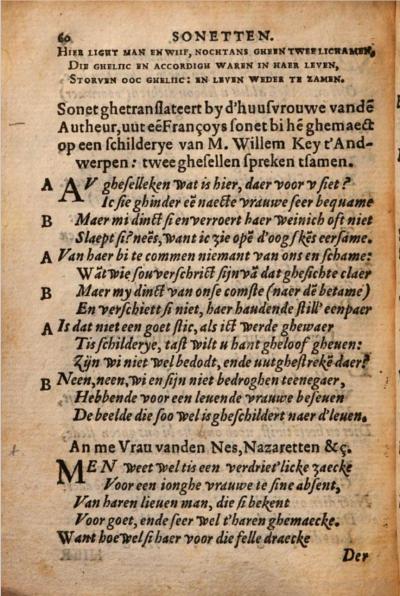 60 SONETTEN.
HIER LIGHT MAN EN WIIF, NOCHTANS GHEEN TWEE LICHAMEN,
DIE GHELIIC EN ACCORDIGH WAREN IN HAER LEVEN,
STORVEN OOC GHELIIC: EN LEVEN WEDER TE ZAMEN.
Sonet ghetranslateert by d'huusvrouwe vandē
Autheur, uut eē Françoys sonet bi hē ghemaect
op een schilderye van M. Willem Key t'And-
werpen: twee ghesellen spreken tsamen.
A AV gheselleken wat is hier, daer voor v siet?
Ic sie ghinder eē naecte vrauwe seer bequame
B Maer mi dinct si en verroert haer weinich oft niet
Slaept si? neēs, want ic zie opē d'oogskēs eersame.
A Van haer bi te commen niemant van ons en schame:
Wāt wie sou verschrict sijn vā dat ghesichte claer
B Maer my dinct van onse comste (naer dē betame)
En verschiett si niet, haer haudende still' eenpaer
A Is dat niet een goet stic, als ict werde ghewaer
Tis schilderye, tast wilt u hant gheloof gheuen:
Zijn wi niet wel bedodt, ende uutghestrekē daer?
B Neen, neen, wi en sijn niet bedroghen teenegaer,
Hebbende voor een leuende vrauwe beseuen
De beelde die soo wel is gheschildert naer d'leuen.
An me Vrau vanden Nes, Nazaretten &ç.
MEN weet wel tis een verdriet'licke zaecke
Voor een ionghe vrauwe te sine absent,
Van haren lieuen man, die si bekent
Voor goet, ende seer wel t'haren ghemaecke.
Want hoe wel si haer voor die felle draecke
Der